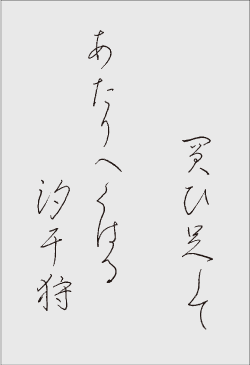 買ひ足して
あたりへくばる
汐干狩